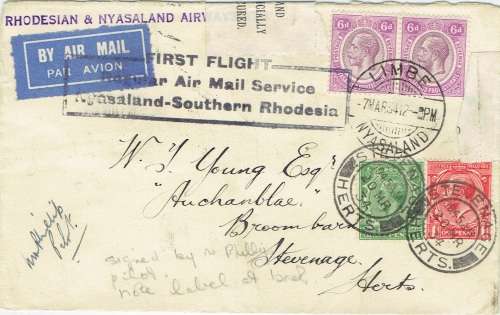 RHODESIAN & NYASALAND AIRW
BY AIR MAIL
PAR AVION
FIRST FLIGHT
Regular Air Mail Service
Nyasaland-Southern Rhodesia
AND
CIALLY
URED.
6d 6d
6d 6d
LIMBE
-7MAR34 12- PM
NYASALAND
W. J. Young Esqr
"Auchanblae"
Broombarn
Stevenage
Herts.
STEVENAGE
HERTS.
STEVENAGE
HERTS.
Pilot.
signed by
pilot
note label at back